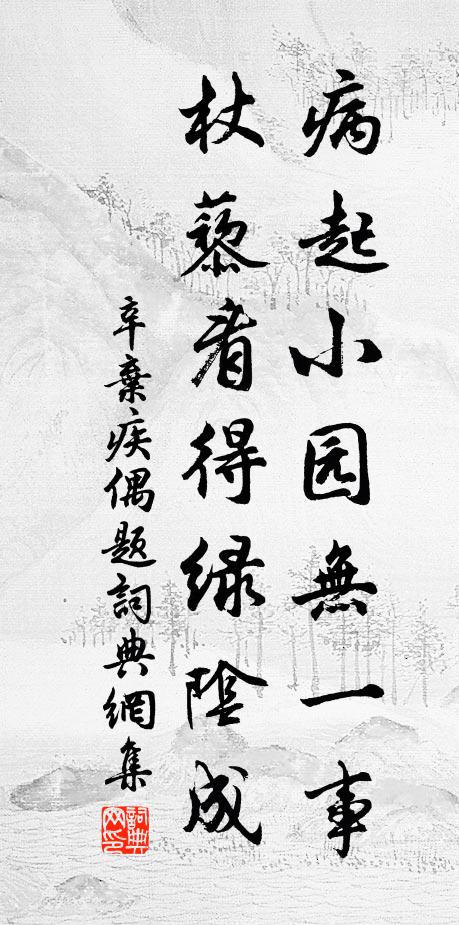 病起小园無一事
杖藜看得绿陰成
辛棄疾偶题詞典網集
詞典
网印